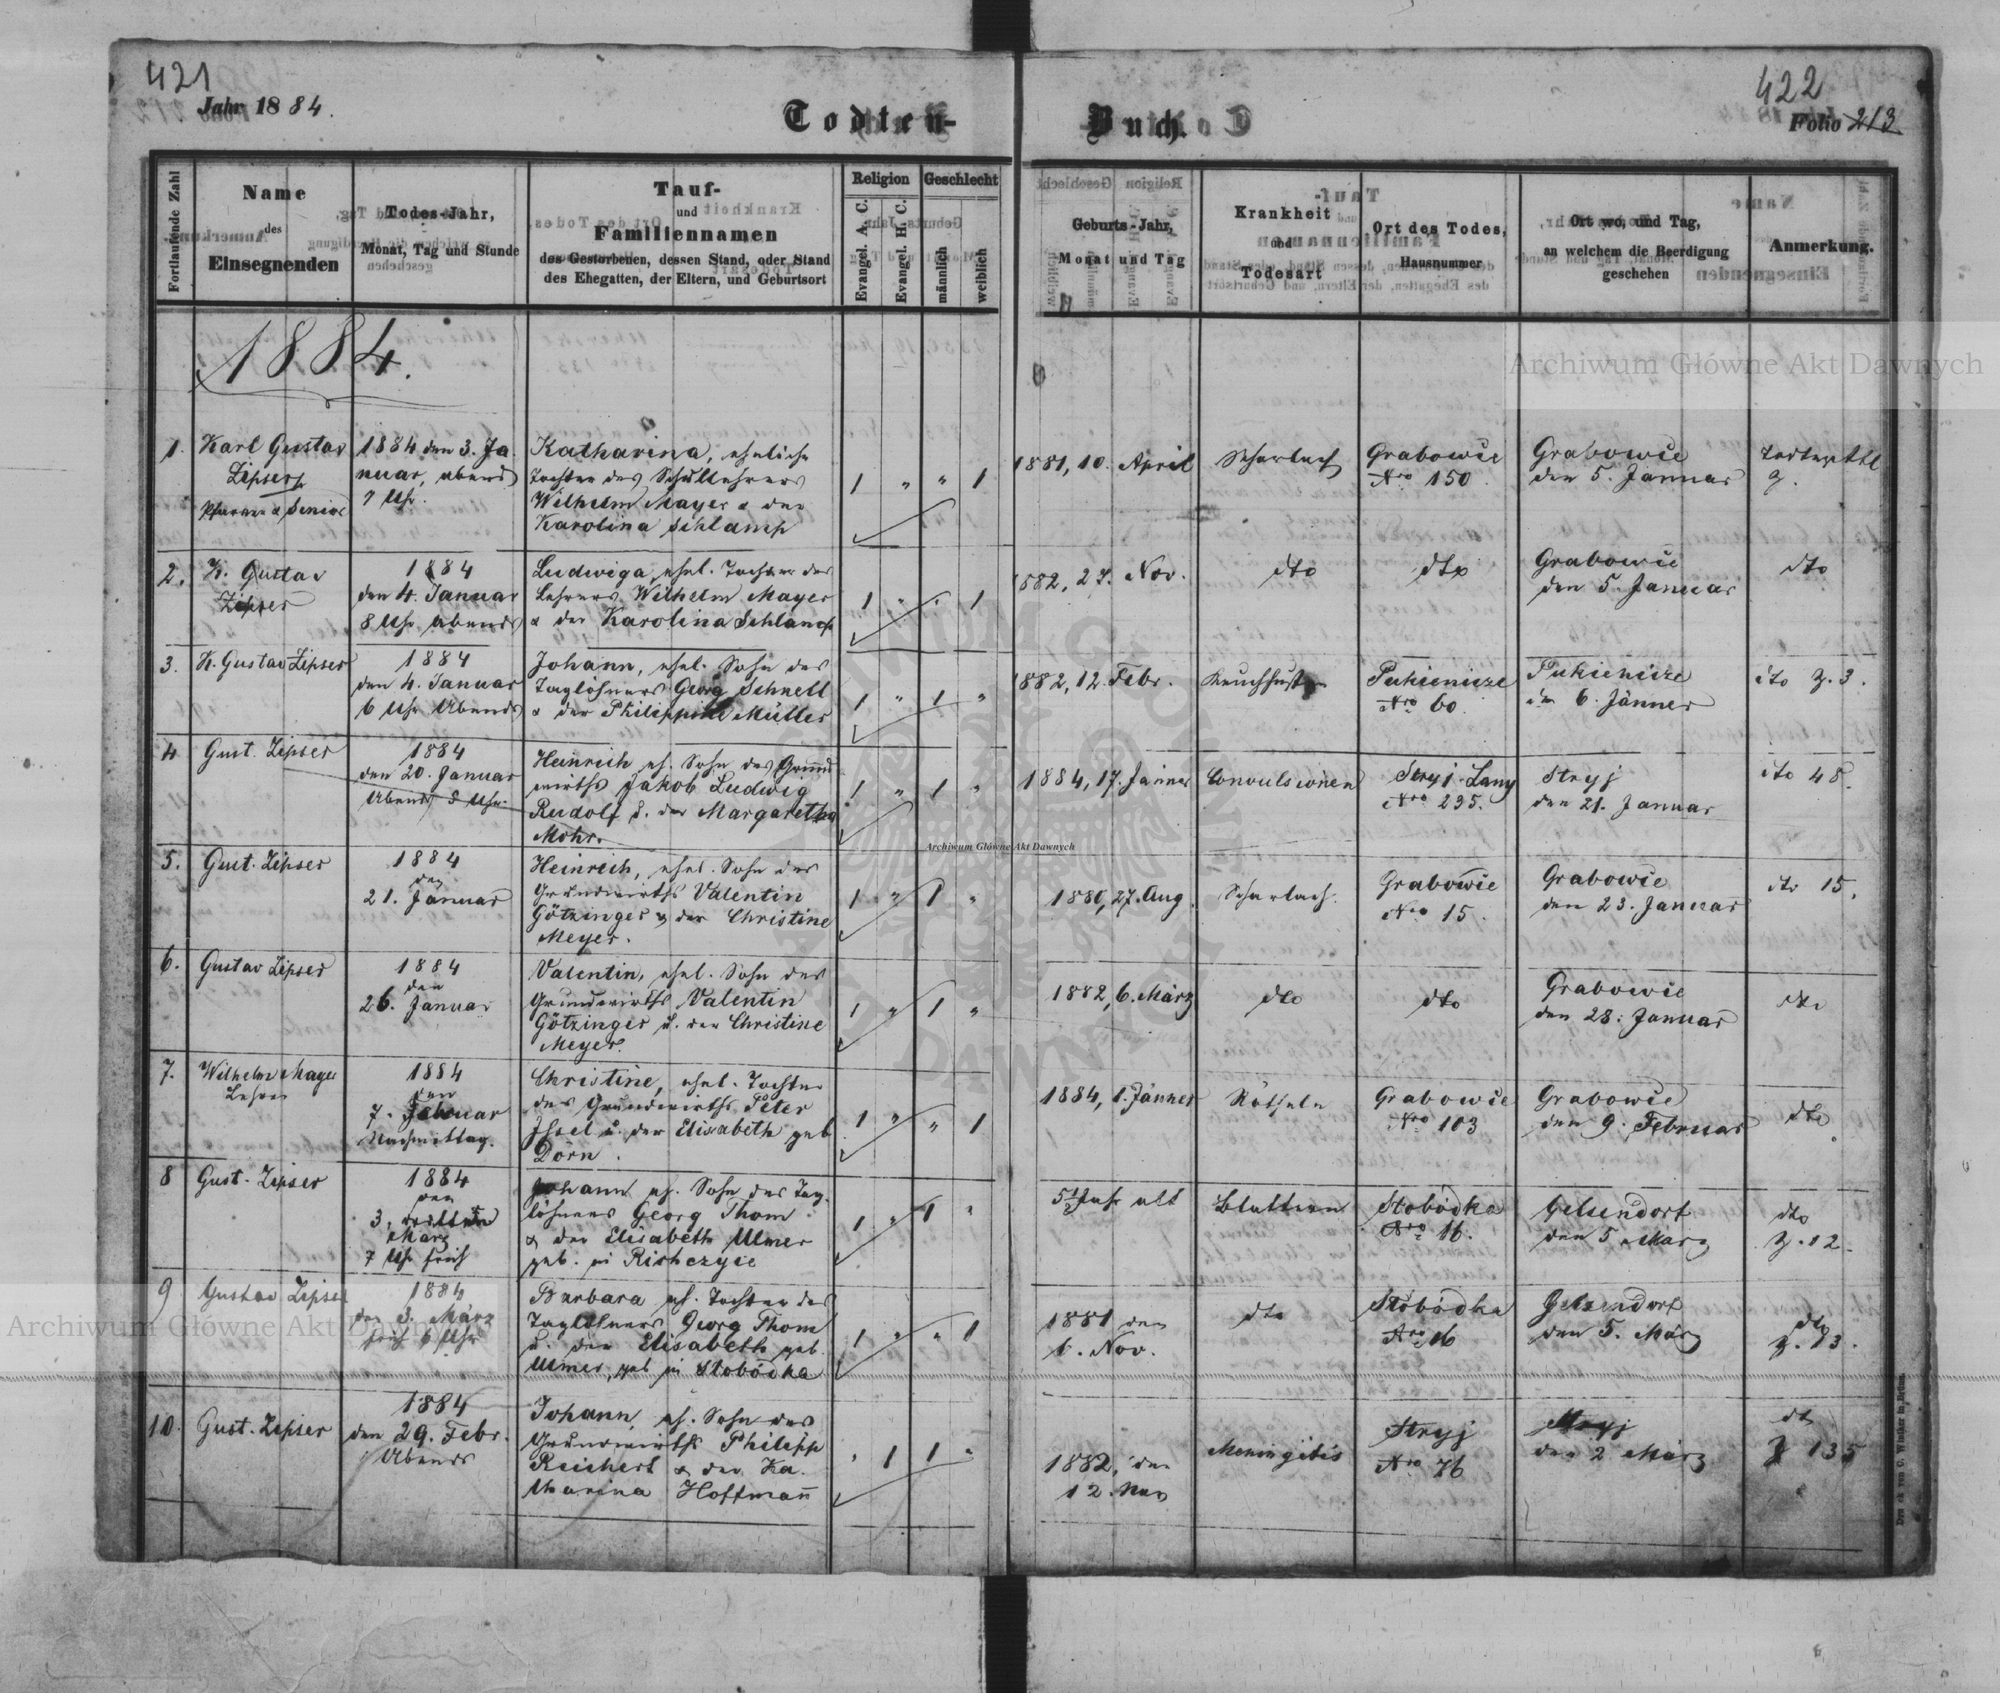 421
422
Jahr 1884.
Todten-
Buch.
Folio 213
Fortlaufende Zahl
Name
des
Einsegnenden
Todes-Jahr,
Monat, Tag und Stunde
Tauf-
und
Familiennamen
des Gestorbenen, dessen Stand, oder Stand
des Ehegatten, der Eltern, und Geburtsort
Religion
Evangel. A. C.
Evangel. H. C.
Geschlecht
männlich
weiblich
Geburts-Jahr,
Monat und Tag
Krankheit
und
Todesart
Ort des Todes,
Hausnummer
Ort wo, und Tag,
an welchem die Beerdigung
geschehen
Anmerkung.
1884.
1.
Karl Gustav
Zipser
Pfarrer & Senior
1884 den 3. Ja
nuar, abends
7 Uhr.
Katharina, eheliche
Tochter des Schullehrers
Wilhelm Mayer & der
Karolina Schlamp
1 " " 1
1881, 10. April
Scharlach
Grabowce
Nro 150.
Grabowce
den 5. Januar
2.
K. Gustav
Zipser
1884
den 4. Januar
8 Uhr abends
Ludwiga, ehel. Tochter des
Lehrers Wilhelm Mayer
& der Karolina Schlamp
1 " " 1
1882, 27. Nov.
dto
dto
Grabowce
den 5. Januar
dto
3.
K. Gustav Zipser
1884
den 4. Januar
6 Uhr Abends
Johann, ehel. Sohn des
Taglöhners Georg Schnell
& der Philippine Müller
1 " 1 "
1882, 12. Febr.
Keuchhusten
Pukienicze
Nro 60.
Pukienicze
den 6. Jänner
dto Z. 3.
4
Gust. Zipser
1884
den 20. Januar
Abends 8 Uhr.
Heinrich eh. Sohn des Grund
wirths Jakob Ludwig
Rudolf u. der Margaretha
Mohr.
1 " 1 "
1884, 17. Jänner
Convulsionen
Stryj-Lany
Nro 235.
Stryj
den 21. Januar
dto 48.
5.
Gust. Zipser
1884
den
21. Januar
Heinrich, ehel. Sohn des
Grundwirths Valentin
Götzinger & der Christine
Meyer.
1 " 1 "
1880, 27. Aug.
Scharlach.
Grabowce
Nro 15.
Grabowce
den 23. Januar
dto 15.
6.
Gustav Zipser
1884
den
26. Januar
Valentin, ehel. Sohn des
Grundwirths Valentin
Götzinger u. der Christine
Meyer.
1 " 1 "
1882, 6. März
dto
dto
Grabowce
den 28. Januar
dto
7.
Wilhelm Mayer
Lehrer
1884
den
7. Februar
Nachmittag.
Christine, ehel. Tochter
des Grundwirths Peter
Issel u. der Elisabeth geb
Dörn.
1 " " 1
1884, 1. Jänner
Rötheln
Grabowce
Nro 103
Grabowce
den 9. Februar
dto
8
Gust. Zipser
1884
den
3.
März
7 Uhr früh
Johann eh. Sohn des Tag-
löhners Georg Thom
& der Elisabeth Ulmer
geb. in
1 " 1 "
5½ Jahr alt
Blattern
Slobódka
Nro 16.
Gelsendorf
den 5. März
dto
Z. 12.
9
Gustav Zipser
1884
den 3. März
früh 6 Uhr
Barbara eh. Tochter des
Taglöhners Georg Thom
u. der Elisabeth geb.
Ulmer, geb in Slobódka
1 " " 1
1881 den
6. Nov.
dto
Slobódka
Nro 16
Gelsendorf
den 5. März
dto
Z. 13.
10.
Gust. Zipser
1884
den 29. Febr.
Abends
Johann, eh. Sohn des
Grundwirths Philipp
Reichert & der Ka-
tharina Hoffmann
" 1 1 "
1882, den
12. Nov
Meningitis
Stryj
Nro 76
Stryj
den 2 März
dto
Z 135
Archiwum Główne Akt Dawnych
Archiwum Główne Akt Dawnych
Archiwum Główne Akt Dawnych